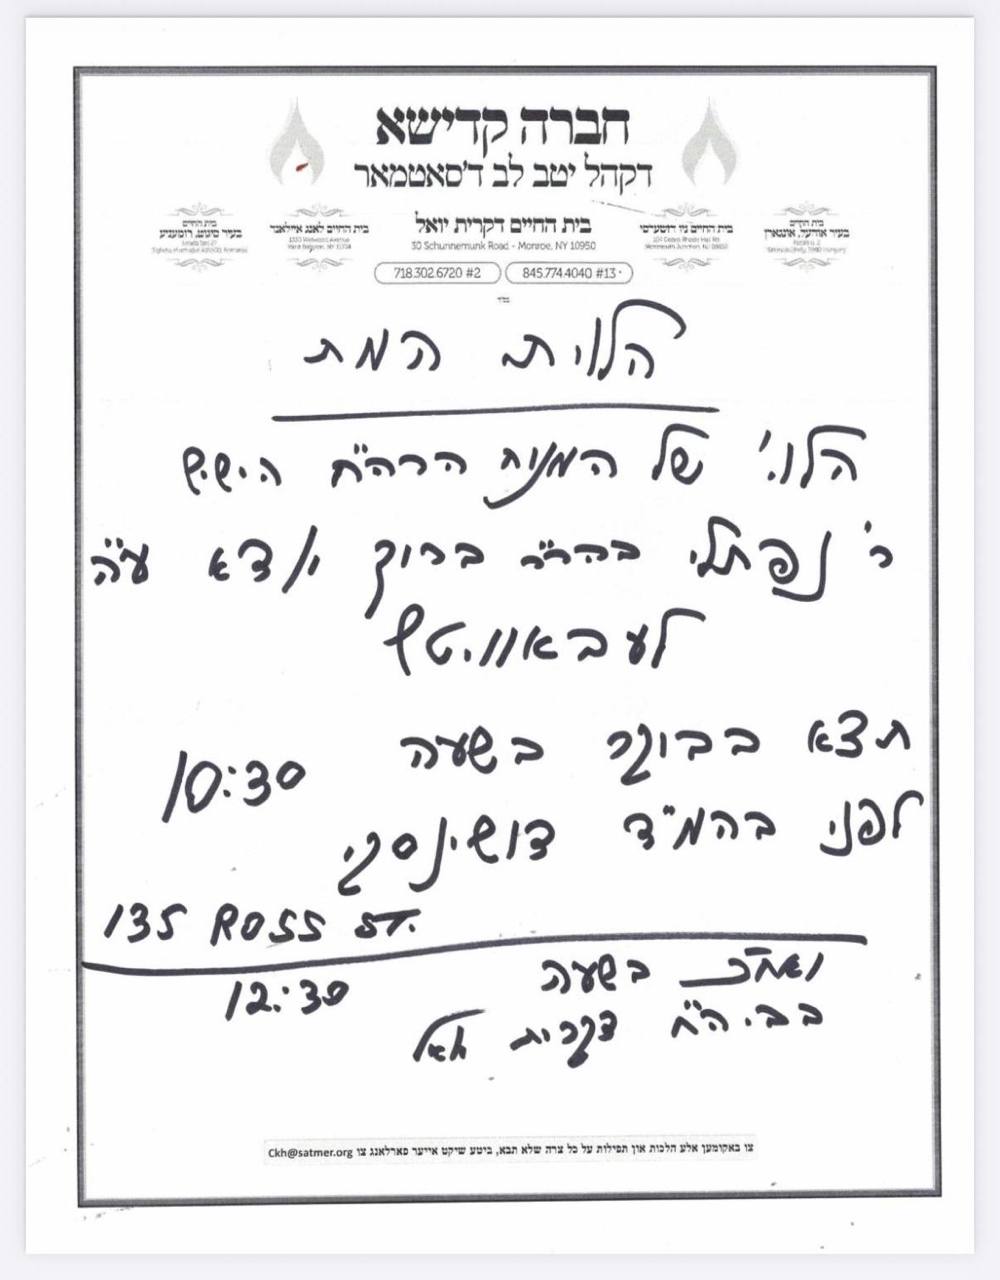 חברה קדישא
דקהל יטב לב ד'סאטמאר
בית החיים דקרית יואל
30 Schunnemunk Road - Monroe, NY 10950
בית החיים
בעיר אוהעל, אונגארן
בית החיים ניו דזשערסי
בית החיים לאנג איילאנד
בית החיים
בעיר סיגעט, רומעניע
718.302.6720 #2
845.774.4040 #13
בס"ד
הלוית המת
הלוי' של המנוח הרה"ח הישיש
ר' נפתלי בהר"ר ברוך יודא ע"ה
לעבאוויטש
תצא בבוקר בשעה 10:30
לפני בהמ"ד דושינסקי
135 ROSS ST.
ואח"כ בשעה 12:30
בבי' הח' דקרית יואל
צו באקומען אלע הלכות און תפילות על כל צרה שלא תבא, ביטע שיקט אייער פארלאנג צו Ckh@satmer.org